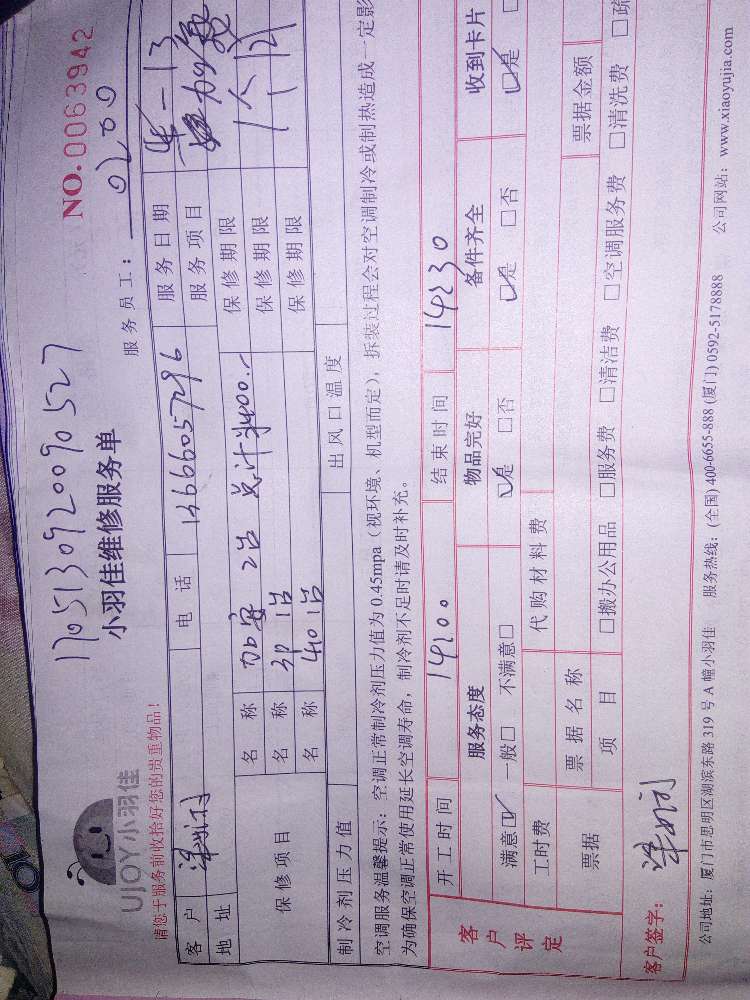 NO.0063942
170513092009 0527
小羽佳维修服务单
UJOY小羽佳
请您于服务前收拾好您的贵重物品！
服务员工：0200
客户 电话 13666057296 服务日期
地址 服务项目
保修项目 名称 加安 2台 总计¥400.- 保修期限
名称 3P 1台 保修期限
名称 410 1台 保修期限
制冷剂压力值 出风口温度
空调服务温馨提示：空调正常制冷剂压力值为0.45mpa（视环境、机型而定），拆装过程会对空调制冷或制热造成一定影
为确保空调正常使用延长空调寿命，制冷剂不足时请及时补充。
开工时间 14:00 结束时间 14:30
客户评定 服务态度 物品完好 备件齐全 收到卡片
满意☑ 一般□ 不满意□ ☑是 □否 ☑是 □否 ☑是
工时费 代购材料费
票据 票据名称 票据金额
项目 □搬办公用品 □服务费 □清洁费 □空调服务费 □清洗费 □疏
客户签字：
公司地址：厦门市思明区湖滨东路319号A幢小羽佳 服务热线：(全国) 400-6655-888 (厦门) 0592-5178888 公司网站：www.xiaoyujia.com